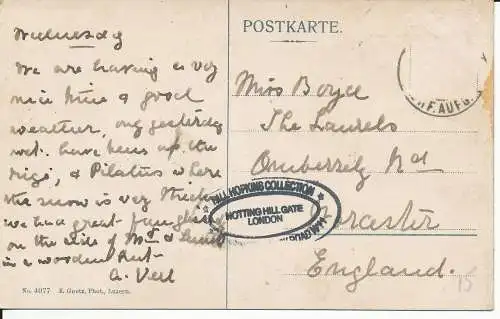 Wednesday
We are having a very
nice time & good
weather, only yesterday
wet. have been up the
rigi, & Pilatus where
the snow is very thick
we had great
on the side of Mt &
in a wooden hut
A.
No. 4077 E. Goetz, Phot., Luzern.
POSTKARTE.
Miss Boyce
The Laurels
Omberrsley Rd
England.
BRF.AUFG.
BILL HOPKINS COLLECTION
NOTTING HILL GATE
LONDON
ROAD W11
15